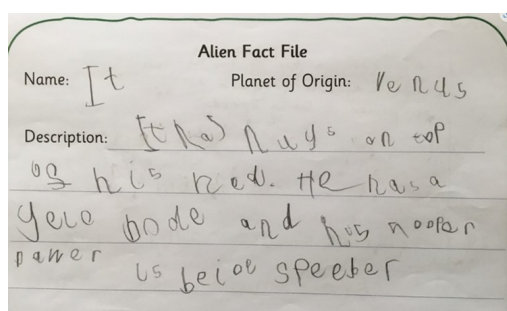 Alien Fact File
Name: It Planet of Origin: Venus
Description: It has nuys on top
of his hed. He has a
yelo bode and his nooper
pawer is beioe speeber